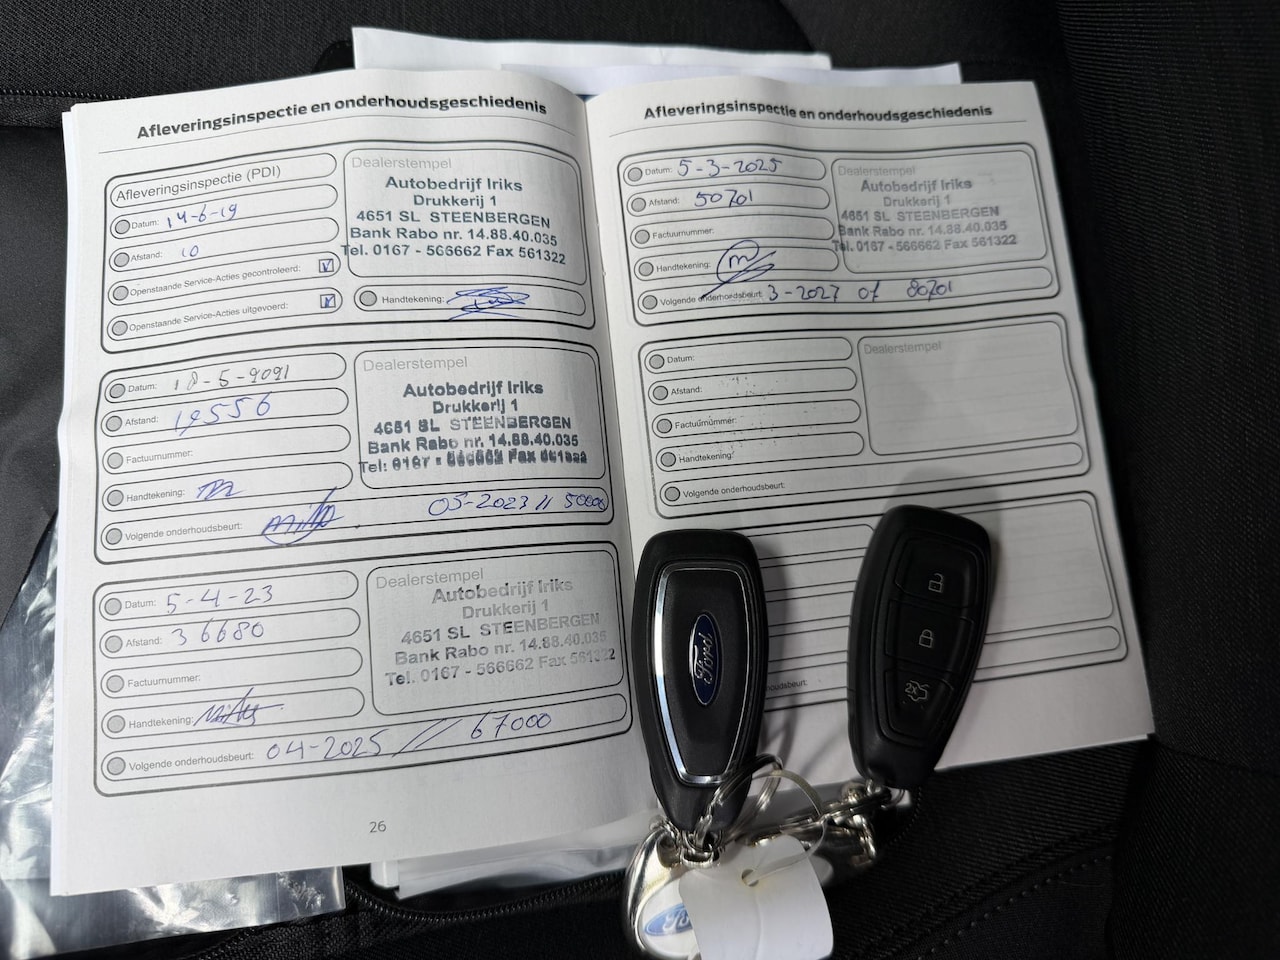 Afleveringsinspectie en onderhoudsgeschiedenis
Afleveringsinspectie (PDI)
Datum: 14-6-19
Afstand: 10
Openstaande Service-Acties gecontroleerd:
Openstaande Service-Acties uitgevoerd:
Dealerstempel
Autobedrijf Iriks
Drukkerij 1
4651 SL STEENBERGEN
Bank Rabo nr. 14.88.40.035
Tel. 0167 - 566662 Fax 561322
Handtekening:
Datum: 18-5-2021
Afstand: 19556
Factuurnummer:
Handtekening:
Volgende onderhoudsbeurt: 05-2023 // 50000
Dealerstempel
Autobedrijf Iriks
Drukkerij 1
4651 SL STEENBERGEN
Bank Rabo nr. 14.88.40.035
Tel: 0167 - 566662 Fax 561322
Datum: 5-4-23
Afstand: 36680
Factuurnummer:
Handtekening:
Volgende onderhoudsbeurt: 04-2025 // 67000
Dealerstempel
Autobedrijf Iriks
Drukkerij 1
4651 SL STEENBERGEN
Bank Rabo nr. 14.88.40.035
Tel. 0167 - 566662 Fax 561322
26
Afleveringsinspectie en onderhoudsgeschiedenis
Datum: 5-3-2025
Afstand: 50701
Factuurnummer:
Handtekening:
Volgende onderhoudsbeurt: 3-2027 of 80701
Dealerstempel
Autobedrijf Iriks
Drukkerij 1
4651 SL STEENBERGEN
Bank Rabo nr. 14.88.40.035
Tel. 0167 - 566662 Fax 561322
Datum:
Afstand:
Factuurnummer:
Handtekening:
Volgende onderhoudsbeurt:
Dealerstempel
Ford
2x
Ford